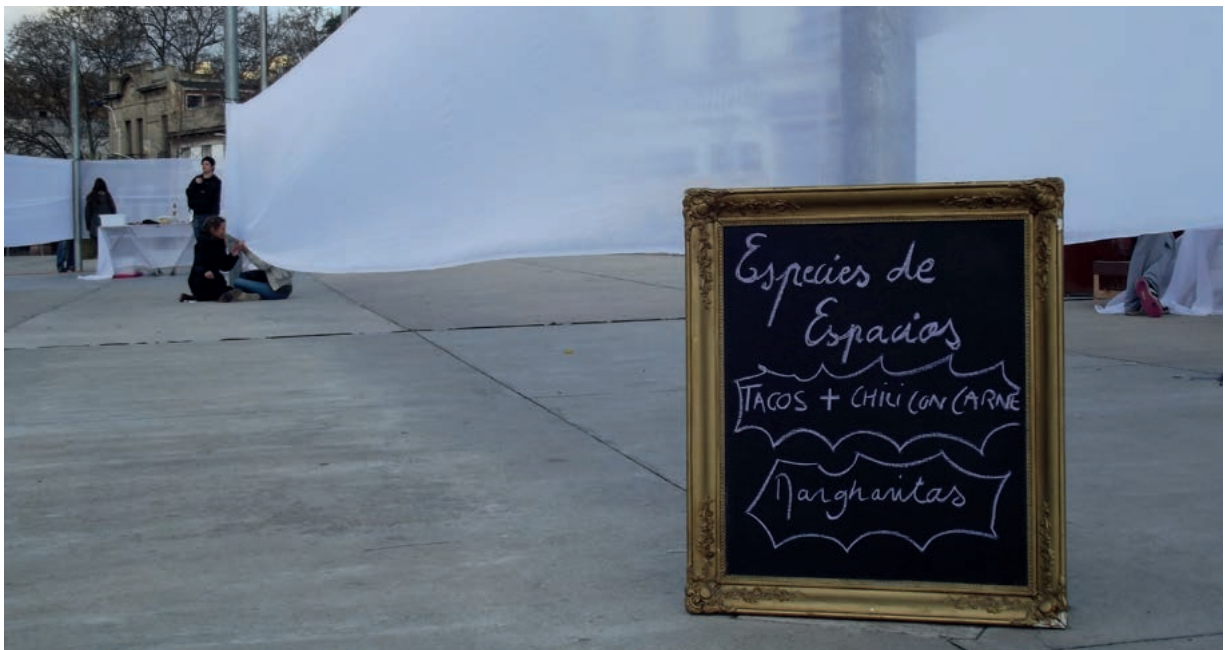 Especies de
Espacios
TACOS + CHILI CON CARNE
Margharitas